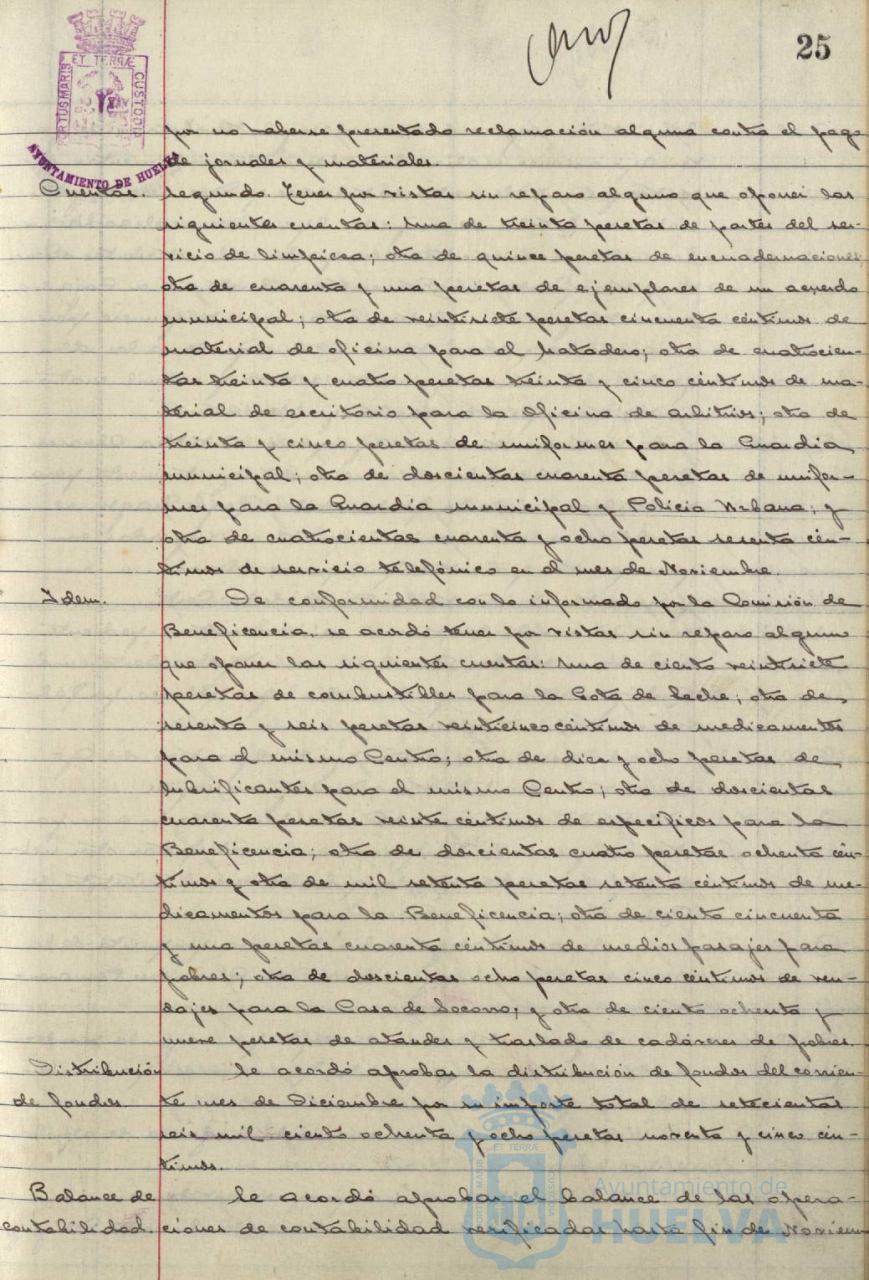 25
PORTUS MARIS ET TERRÆ CUSTODIA
AYUNTAMIENTO DE HUELVA
por no haberse presentado reclamación alguna contra el pago
de jornales y materiales.
Cuentas. Segundo. Tener por vistas sin reparo alguno que oponer las
siguientes cuentas: una de treinta pesetas de partes del ser-
vicio de limpieza; otra de quince pesetas de encuadernaciones
otra de cuarenta y una pesetas de ejemplares de un acuerdo
municipal; otra de veintisiete pesetas cincuenta céntimos de
material de oficina para el Matadero; otra de cuatrocien-
tas treinta y cuatro pesetas treinta y cinco céntimos de ma-
terial de escritorio para la Oficina de Arbitrios; otra de
treinta y cinco pesetas de uniformes para la Guardia
municipal; otra de doscientas cuarenta pesetas de unifor-
mes para la Guardia municipal y Policia Urbana; y
otra de cuatrocientas cuarenta y ocho pesetas sesenta cén-
timos de servicio telefónico en el mes de Noviembre.
Idem. De conformidad con lo informado por la Comisión de
Beneficencia, se acordó tener por vistas sin reparo alguno
que oponer las siguientes cuentas: una de ciento veintisiete
pesetas de combustibles para la Gota de Leche; otra de
sesenta y seis pesetas veinticinco céntimos de medicamentos
para el mismo Centro; otra de diez y ocho pesetas de
lubrificantes para el mismo Centro; otra de doscientas
cuarenta pesetas veinte céntimos de específicos para la
Beneficencia; otra de doscientas cuatro pesetas ochenta cén-
timos y otra de mil setenta pesetas setenta céntimos de me-
dicamentos para la Beneficencia; otra de ciento cincuenta
y una pesetas cuarenta céntimos de medios pasajes para
pobres; otra de doscientas ocho pesetas cinco céntimos de ven-
dajes para la Casa de Socorro; y otra de ciento ochenta y
nueve pesetas de ataudes y traslado de cadáveres de pobres.
Distribución Se acordó aprobar la distribución de fondos del corrien-
de fondos te mes de Diciembre por su importe total de setecientas
seis mil ciento ochenta y ocho pesetas noventa y cinco cén-
timos.
Balance de Se acordó aprobar el balance de las opera-
contabilidad. ciones de contabilidad verificadas hasta fin de Noviem
Ayuntamiento de
HUELVA